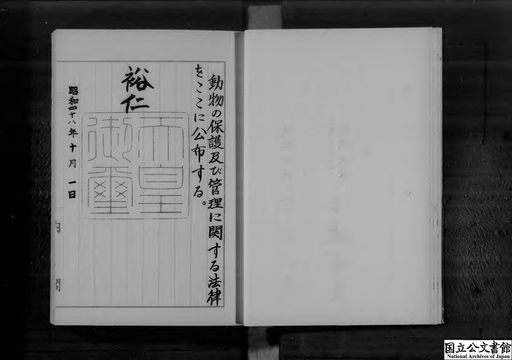 動物の保護及び管理に関する法律
をここに公布する。
裕仁
天皇
御璽
昭和四十八年十月一日
国立公文書館
National Archives of Japan